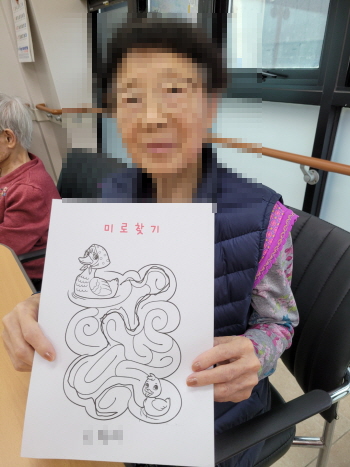 미로찾기